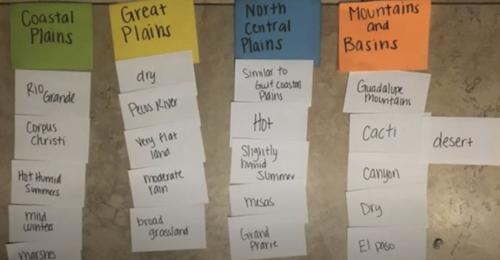 Coastal
Plains
Rio
Grande
Corpus
Christi
Hot Humid
Summers
mild
winter
marshes
Great
Plains
dry
Pecos River
Very flat
land
moderate
rain
broad
grassland
North
Central
Plains
Similar to
Gulf Coastal
Plains
Hot
Slightly
humid
Summer
mesas
Grand
Prarie
Mountains
and
Basins
Guadalupe
Mountains
Cacti
desert
Canyon
Dry
El paso